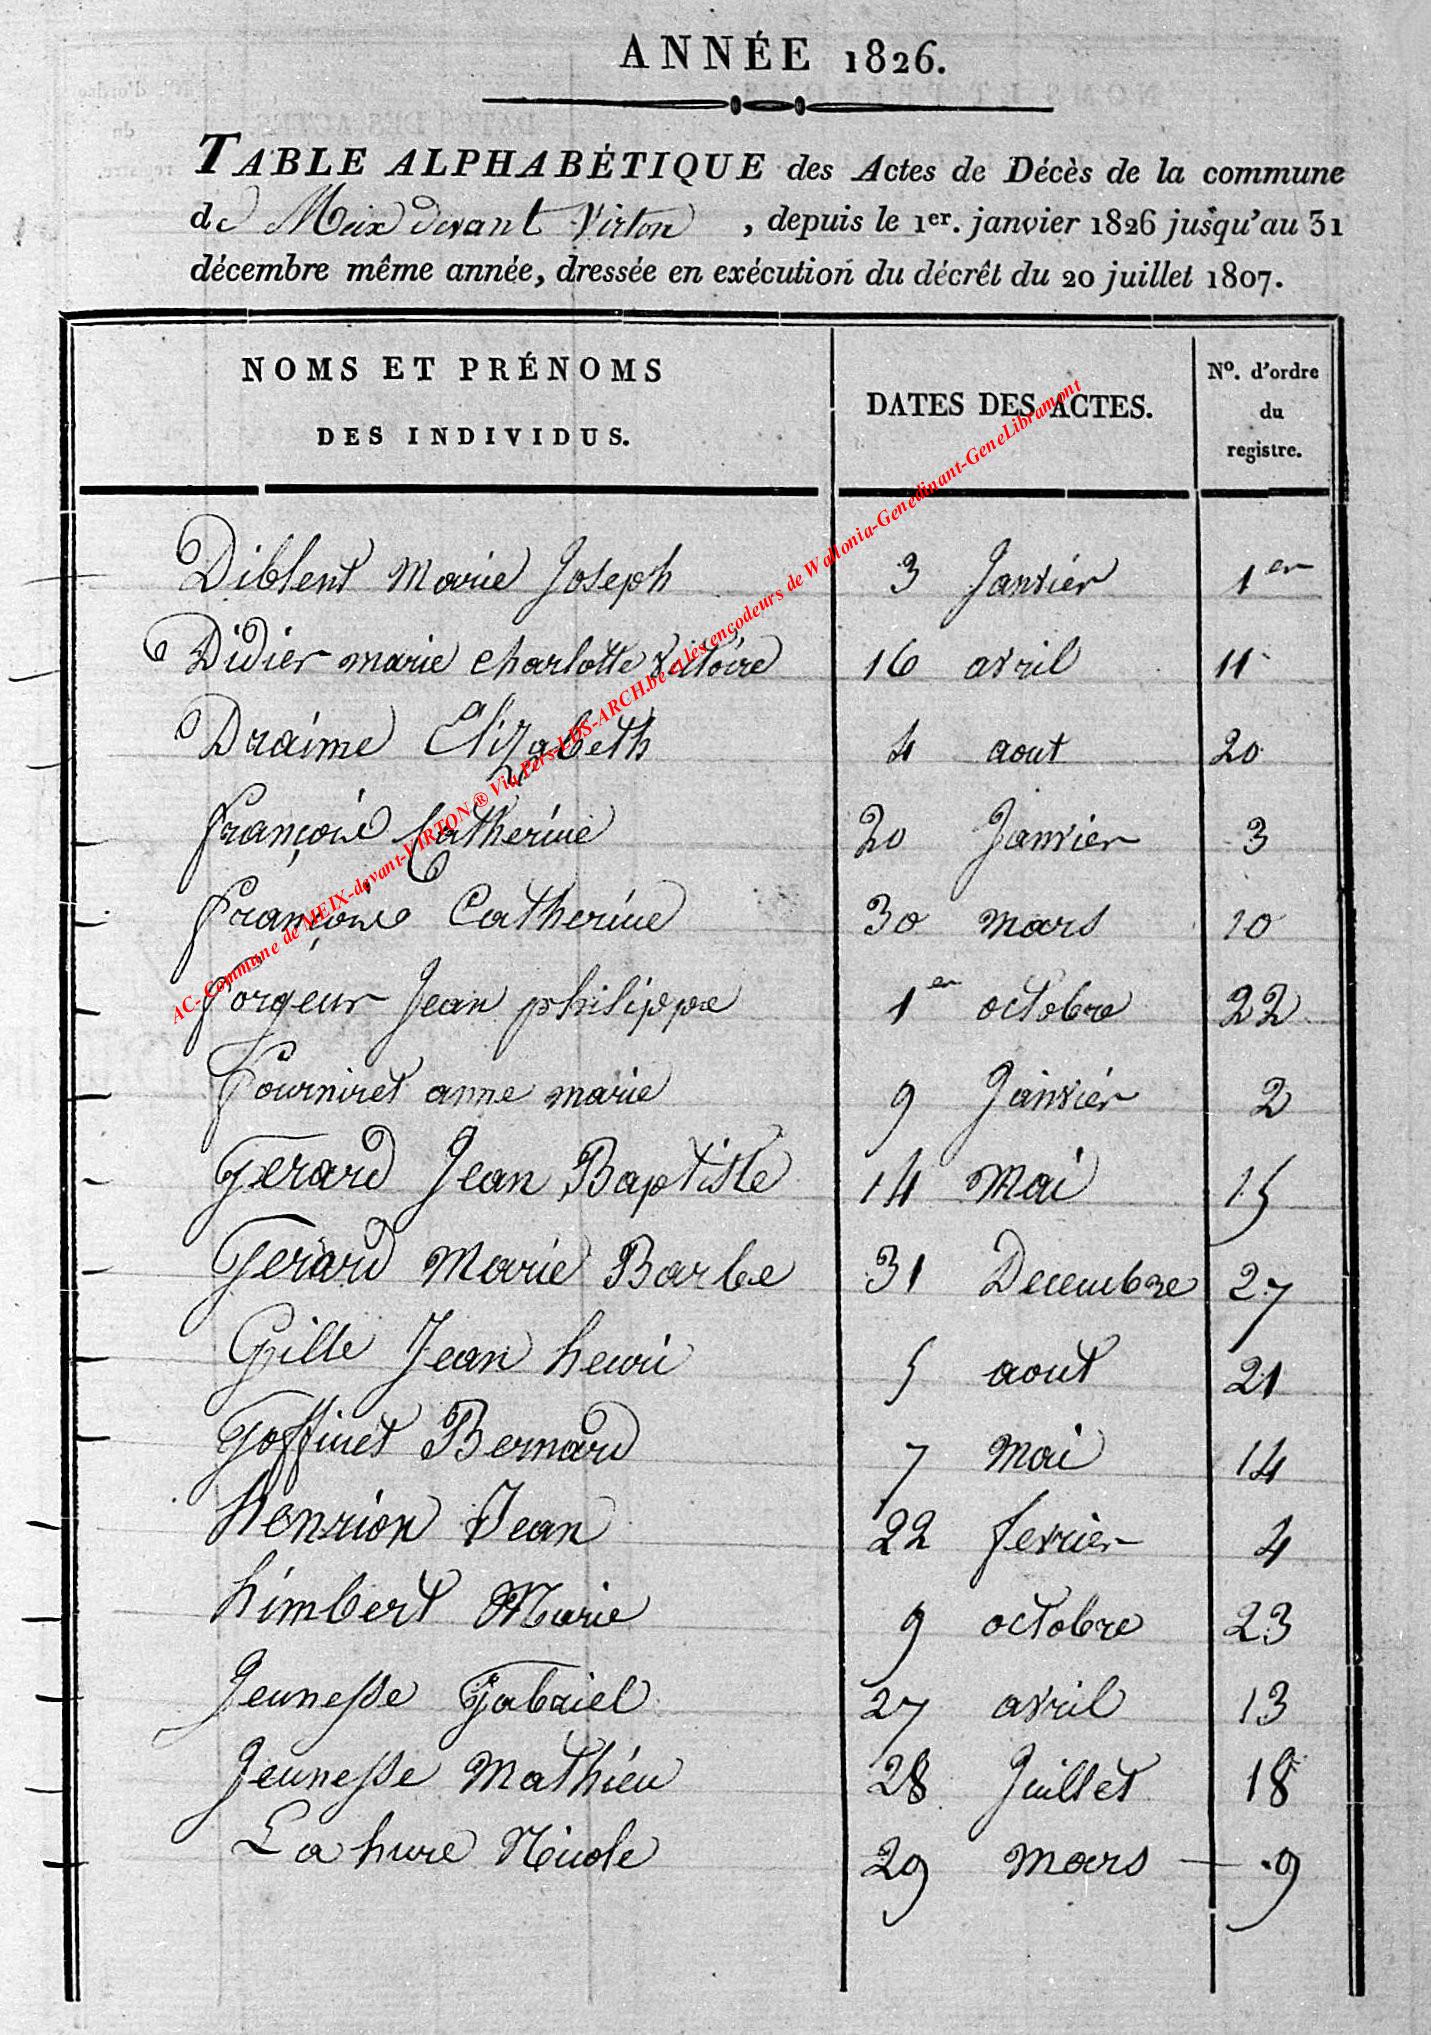 ANNÉE 1826.
TABLE ALPHABÉTIQUE des Actes de Décès de la commune
de Meix devant Virton , depuis le 1er. janvier 1826 jusqu'au 31
décembre même année, dressée en exécution du décrêt du 20 juillet 1807.
NOMS ET PRÉNOMS
DES INDIVIDUS.
DATES DES ACTES.
No. d'ordre
du
registre.
Diblent Marie Joseph 3 Janvier 1er
Didier marie charlotte victoire 16 avril 11
Draime Elizabeth 4 aout 20
françoise Catherine 20 Janvier 3
françoise Catherine 30 mars 10
forgeur Jean philippe 1er octobre 22
fourniret anne marie 9 Janvier 2
Gerard Jean Baptiste 14 Mai 15
Gerard Marie Barbe 31 Decembre 27
Gille Jean henri 5 aout 21
Goffinet Bernard 7 mai 14
henrion Jean 22 fevrier 4
himbert Marie 9 octobre 23
Jeunesse Gabriel 27 avril 13
Jeunesse Mathieu 28 Juillet 18
La hure Nicole 29 mars 9
AC- Commune de MEIX-devant-VIRTON ® Via Pers-LDS-ARCH.be et les encodeurs de Wallonia-Genedinant-GeneLibramont